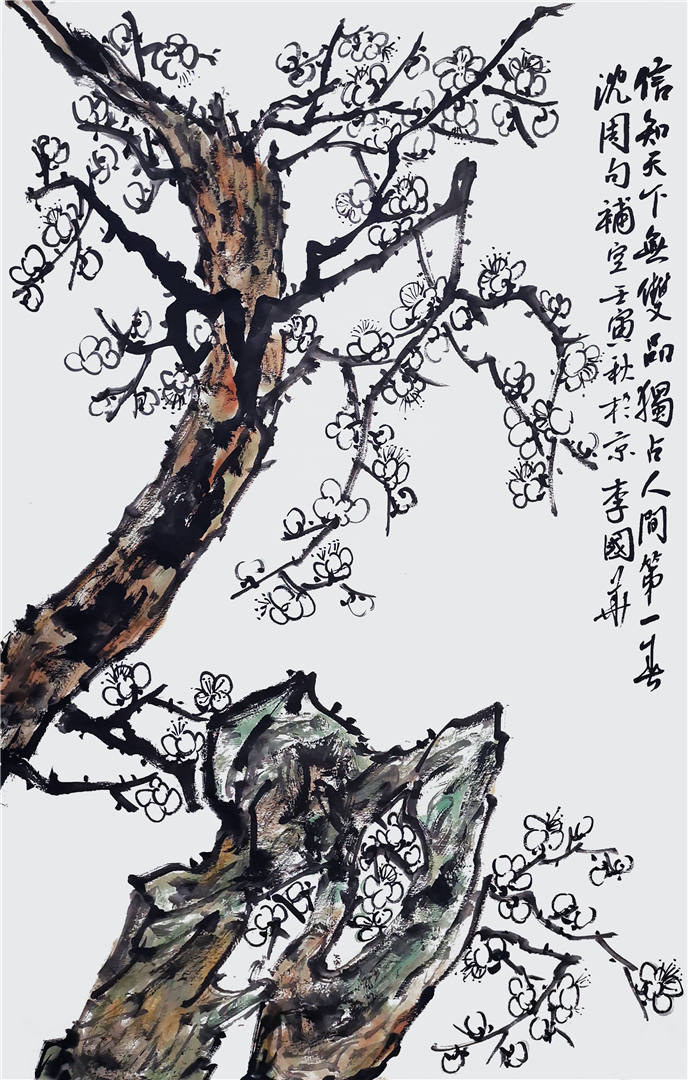 信知天下無雙品獨占人間第一春
沈周句補空壬寅秋於京李國華